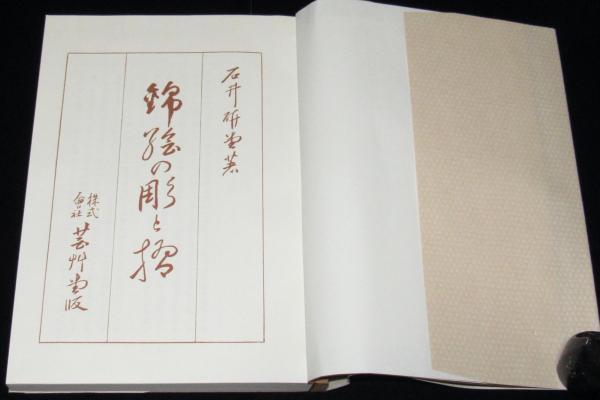 石井研堂著
錦絵の彫と摺
株式會社 芸艸堂版